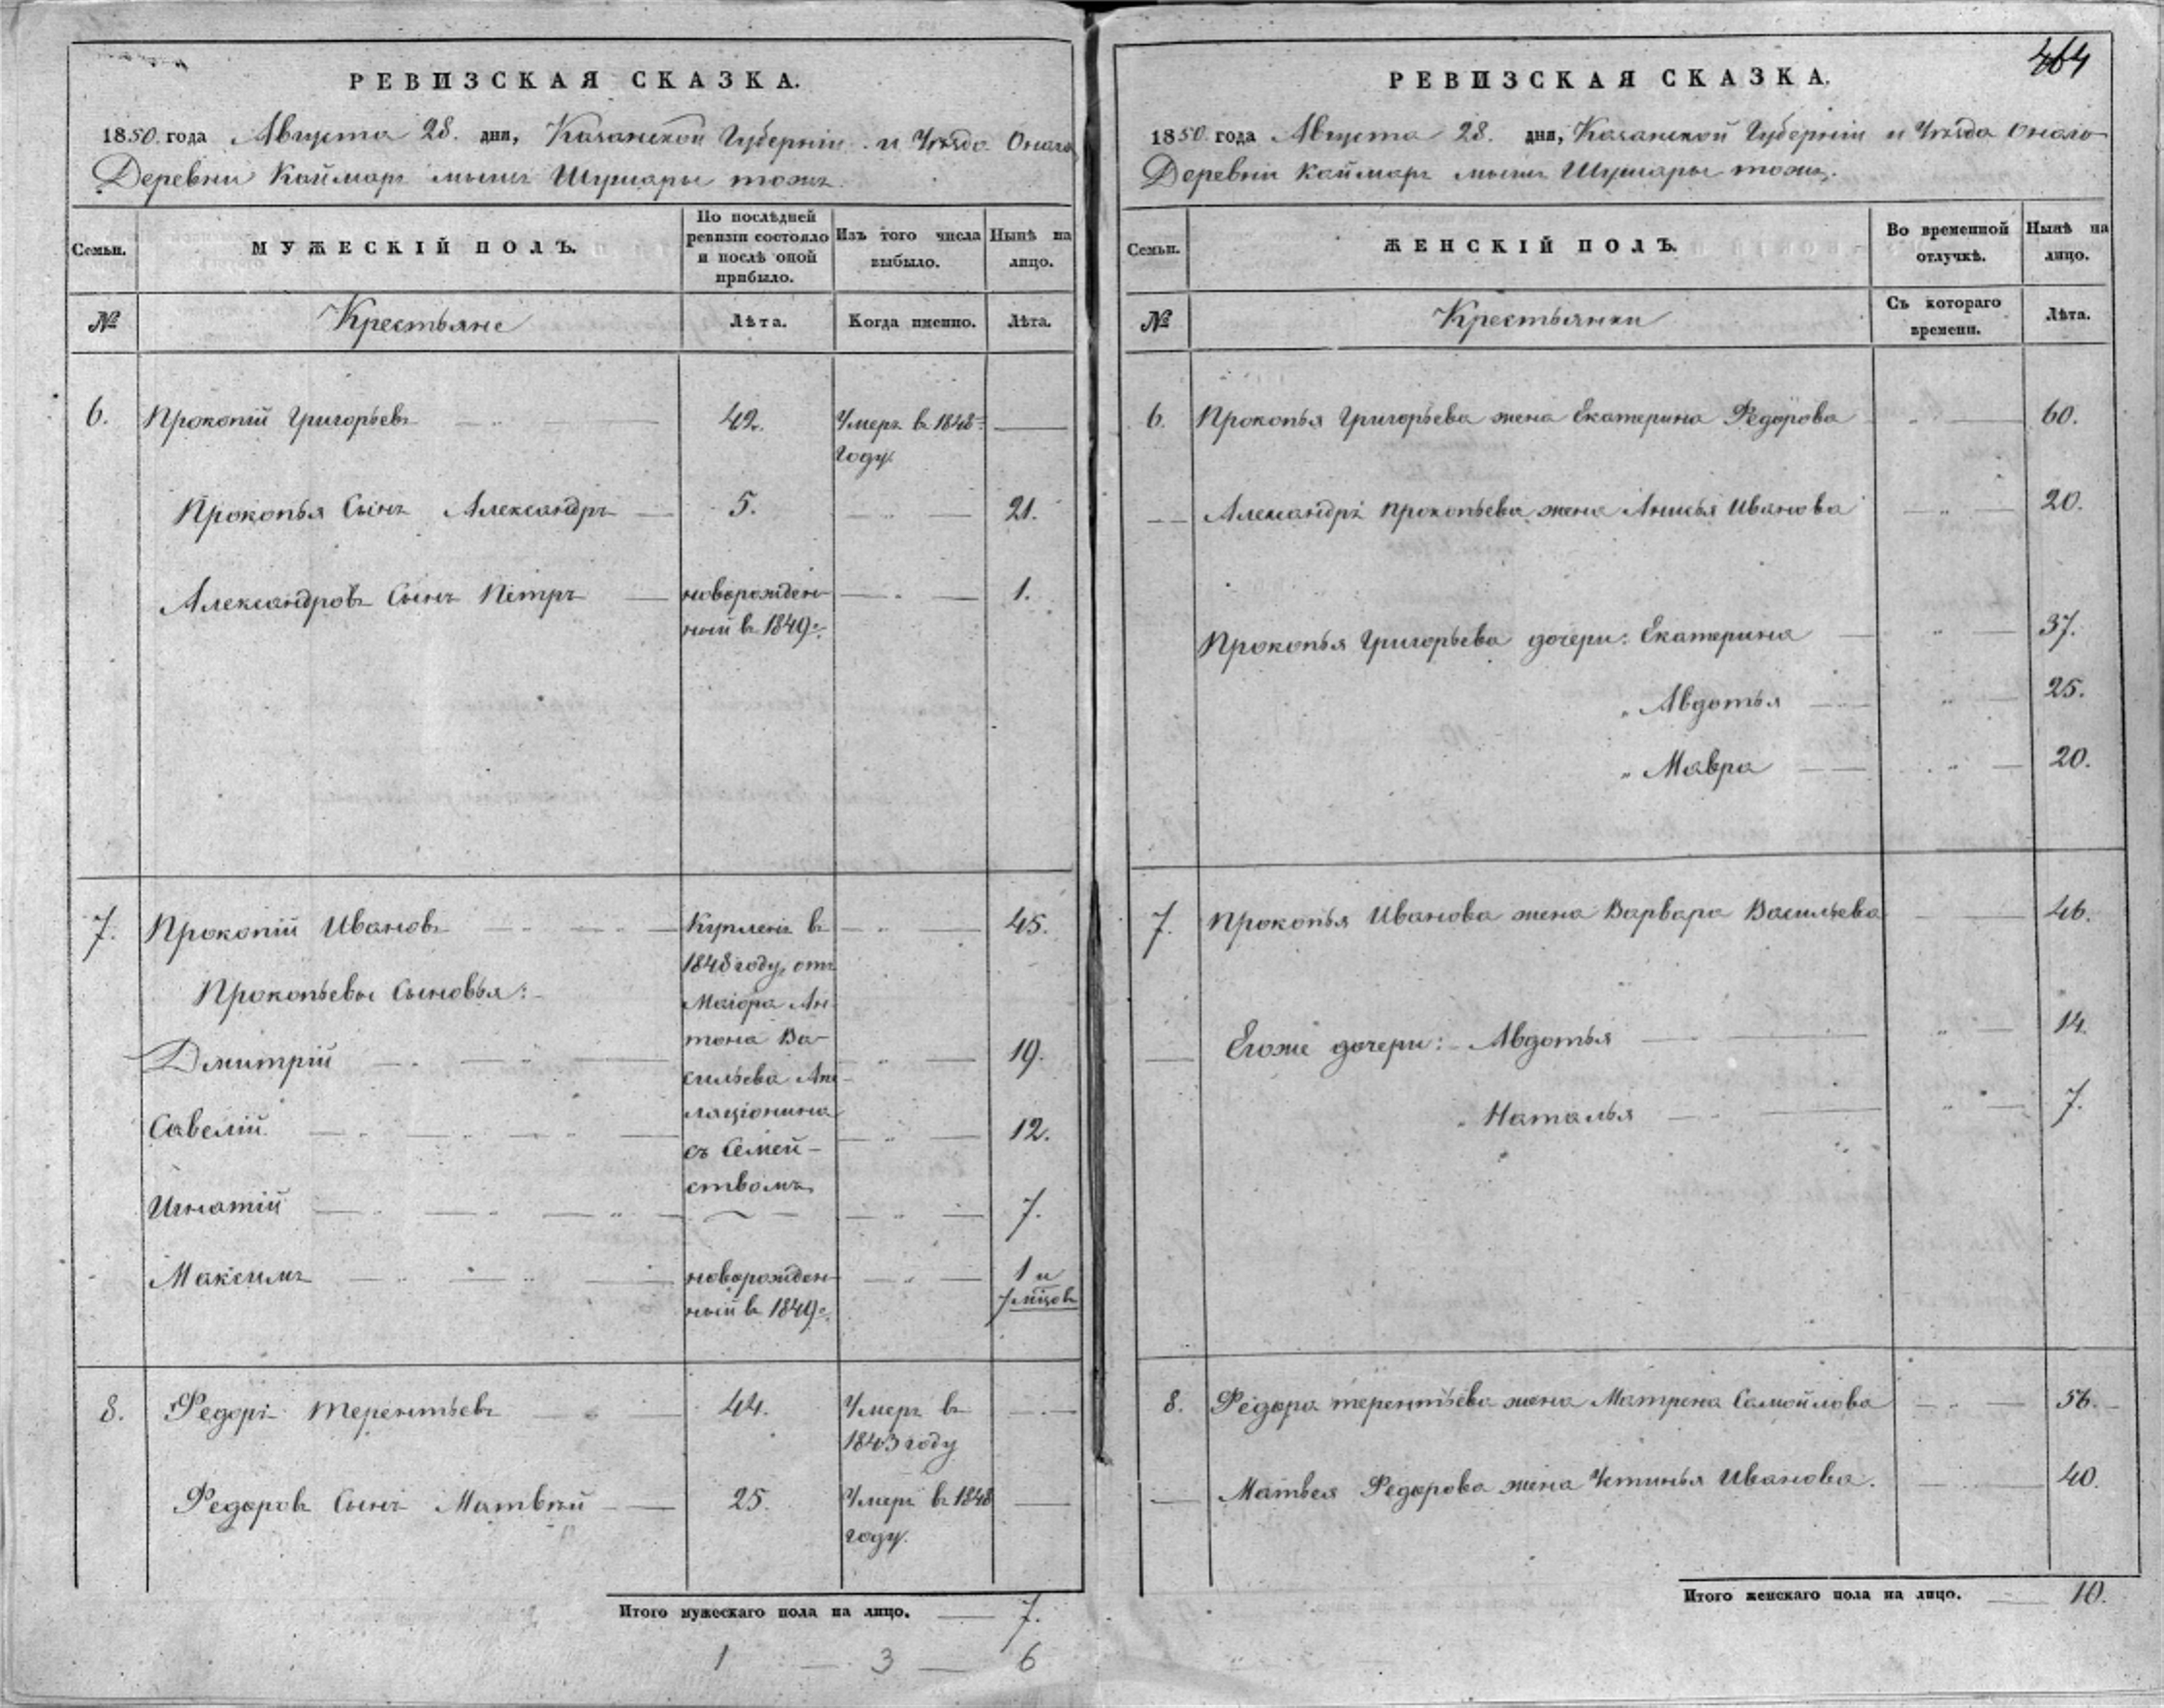 464
РЕВИЗСКАЯ СКАЗКА.
1850. года Августа 28. дня, Казанской Губерніи и Уѣзда Оказо
Деревни Каймаръ мысъ Шушары тожъ
Семьи.
МУЖЕСКІЙ ПОЛЪ.
По послѣдней ревизіи состояло и послѣ оной прибыло.
Изъ того числа выбыло.
Нынѣ на лицо.
№
Крестьяне
Лѣта.
Когда именно.
Лѣта.
6. Прокопій Григорьевъ 42. Умеръ в 1848 году
Прокопья Сынъ Александръ 5. 21.
Александровъ Сынъ Петръ новорожденный в 1849 г. 1.
7. Прокопій Ивановъ 45.
Прокопьевы Сыновья:
Дмитрій 19.
Савелій 12.
Игнатій 7.
Максимъ новорожденный в 1849 г. 1 и 7 мѣцовъ
Купленъ в
1848 году, отъ
Маіора Ан-
тона Ва-
сильева
съ Семей-
ствомъ
8. Федоръ Терентьевъ 44. Умеръ в 1843 году
Федоровъ Сынъ Матвѣй 25. Умеръ в 1848 году.
Итого мужескаго пола на лицо. 7.
1 — 3 — 6
РЕВИЗСКАЯ СКАЗКА.
1850 года Августа 28. дня, Казанской Губерніи и Уѣзда
Деревни Каймаръ мысъ Шушары тожъ.
Семьи.
ЖЕНСКІЙ ПОЛЪ.
Во временной отлучкѣ.
Нынѣ на лицо.
№
Крестьянки
Съ котораго времени.
Лѣта.
6. Прокопья Григорьева жена Екатерина Федорова 60.
Александра Прокопьева жена Анисья Иванова 20.
Прокопья Григорьева дочери: Екатерина 37.
„ Авдотья 25.
„ Мавра 20.
7. Прокопья Иванова жена Варвара Васильева 46.
Егоже дочери: Авдотья 14.
„ Наталья 7.
8. Федора терентьева жена Матрена Самойлова 56.
Матвея Федорова жена Устинья Иванова. 40.
Итого женскаго пола на лицо. 10.